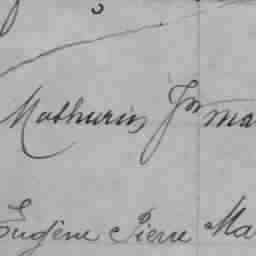 Mathurin Jn Ma
Eugène Pierre Ma